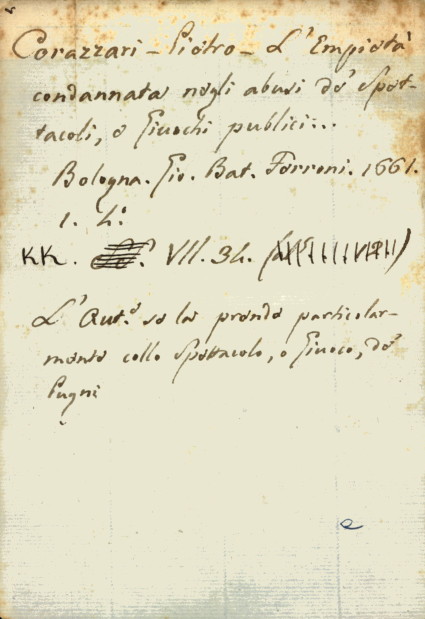 Corazzari - Pietro - L'Empietà
condannata negli abusi de' Spet-
tacoli, e Giuochi publici...
Bologna. Gio. Bat. Ferroni. 1661.
1. 4.°
KK. VII. 34.
L'Aut.e se la prende particolar-
mente collo Spettacolo, o Giuoco, de'
Pugni
e